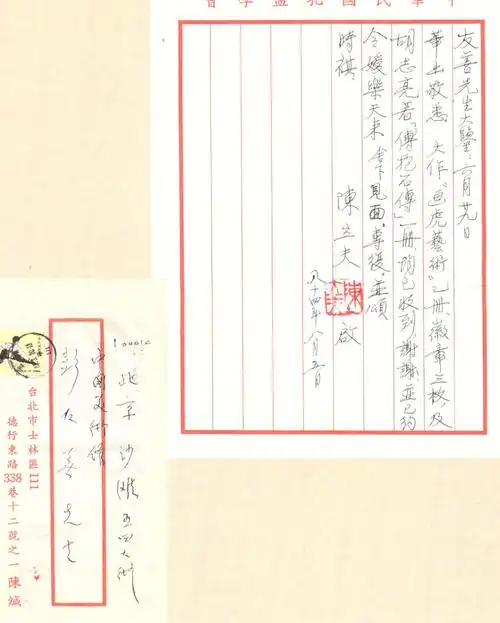 中華民國孔孟學會
友善先生大鑒：六月廿九日
華函敬悉 大作"画虎藝術"乙册，徽章三枚，及
胡志亮著「傅抱石傳」一册，均已收到，謝謝，並已約
令嬡樂天來舍下見面，專復，並頌
時祺
陳立夫 啟
八十四年八月五日
北京 沙灘 五四大街
中國美術館
彭友善先生
台北市士林區111
德行東路338巷十二號之一陳緘